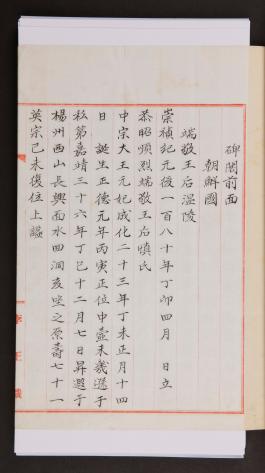 碑閣前面
朝鮮國
端敬王后溫陵
崇禎紀元後一百八十年丁卯四月　日立
恭昭順烈端敬王后愼氏
中宗大王元妃成化二十三年丁未正月十四
日　誕生正德元年丙寅正位中壼未幾遜于
私第嘉靖三十六年丁巳十二月七日昇遐于
楊州西山長興面水回洞亥坐之原壽七十一
英宗己未復位上諡
李王職